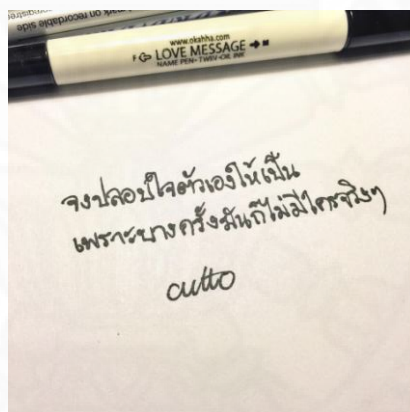 mark on recordable side
www.okahha.com
F LOVE MESSAGE
NAME PEN-TWIN-OIL INK
จงปลอบใจตัวเองให้เป็น
เพราะบางครั้งมันก็ไม่มีใครจริงๆ
cutto